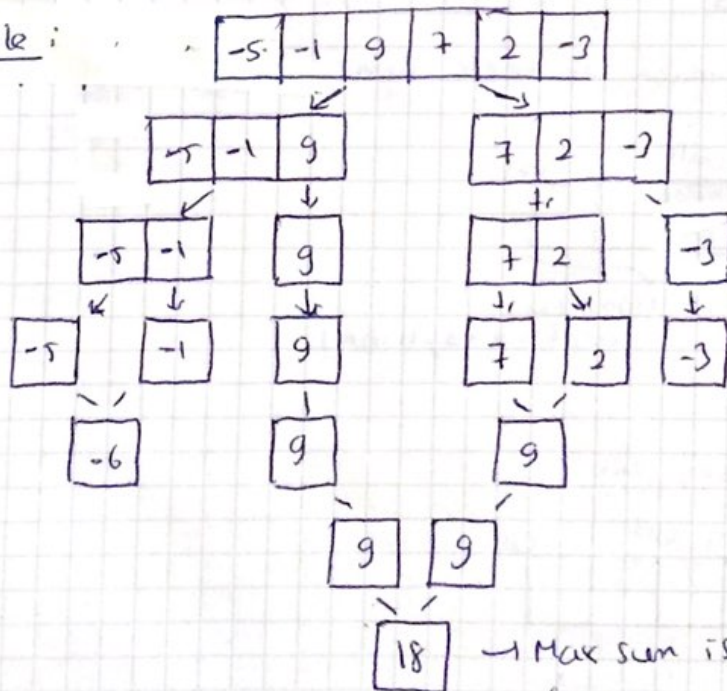 le :
-5 -1 9 7 2 -3
-5 -1 9 7 2 -3
-5 -1 9 7 2 -3
-5 -1 9 7 2 -3
-6 9 9
9 9
18 → Max sum is